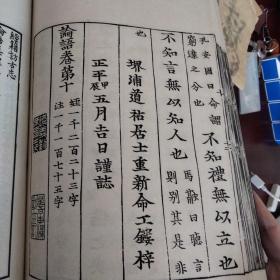 孔安國曰命謂
窮達之分也
不知禮無以立也
不知言無以知人也
馬融曰聽言
則別其是非
也
堺浦道祐居士重新命工鏤梓
正平甲辰五月吉日謹誌
論語卷第十
經一千二百二十三字
注一千一百七十五字
經籍訪古志